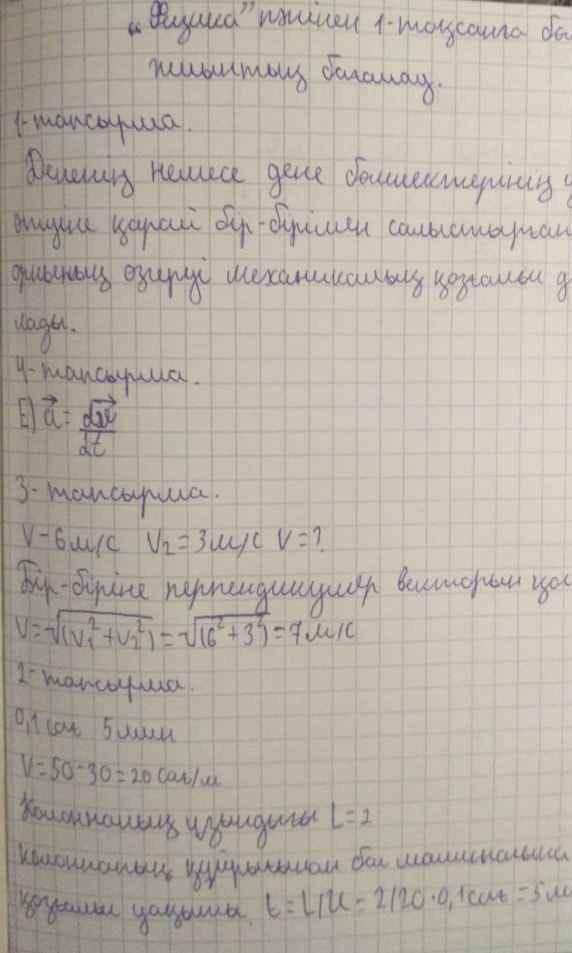 „Физика" пәнінен 1-тоқсанға бо
жиынтық бағалау.
1-тапсырма.
Дененің немесе дене бөлшектерінің у
өтуіне қарай бір-бірімен салыстырған
орнының өзгеруі механикалық қозғалыс д
лады.
4-тапсырма.
E) a⃗=
dt
3-тапсырма.
V-6м/с V₂=3м/с V=?
Бір-біріне перпендикуляр векторын қо
V=√(V₁²+V₂²)=√(6²+3²)=7м/с
2-тапсырма.
0,1 сағ 5 мин
V=50-30=20 сағ/м
Колоннаның ұзындығы L=2
колоннаның құйрығынан бас
қозғалыс уақыты t=L/U=2/20=0,1сағ=5м